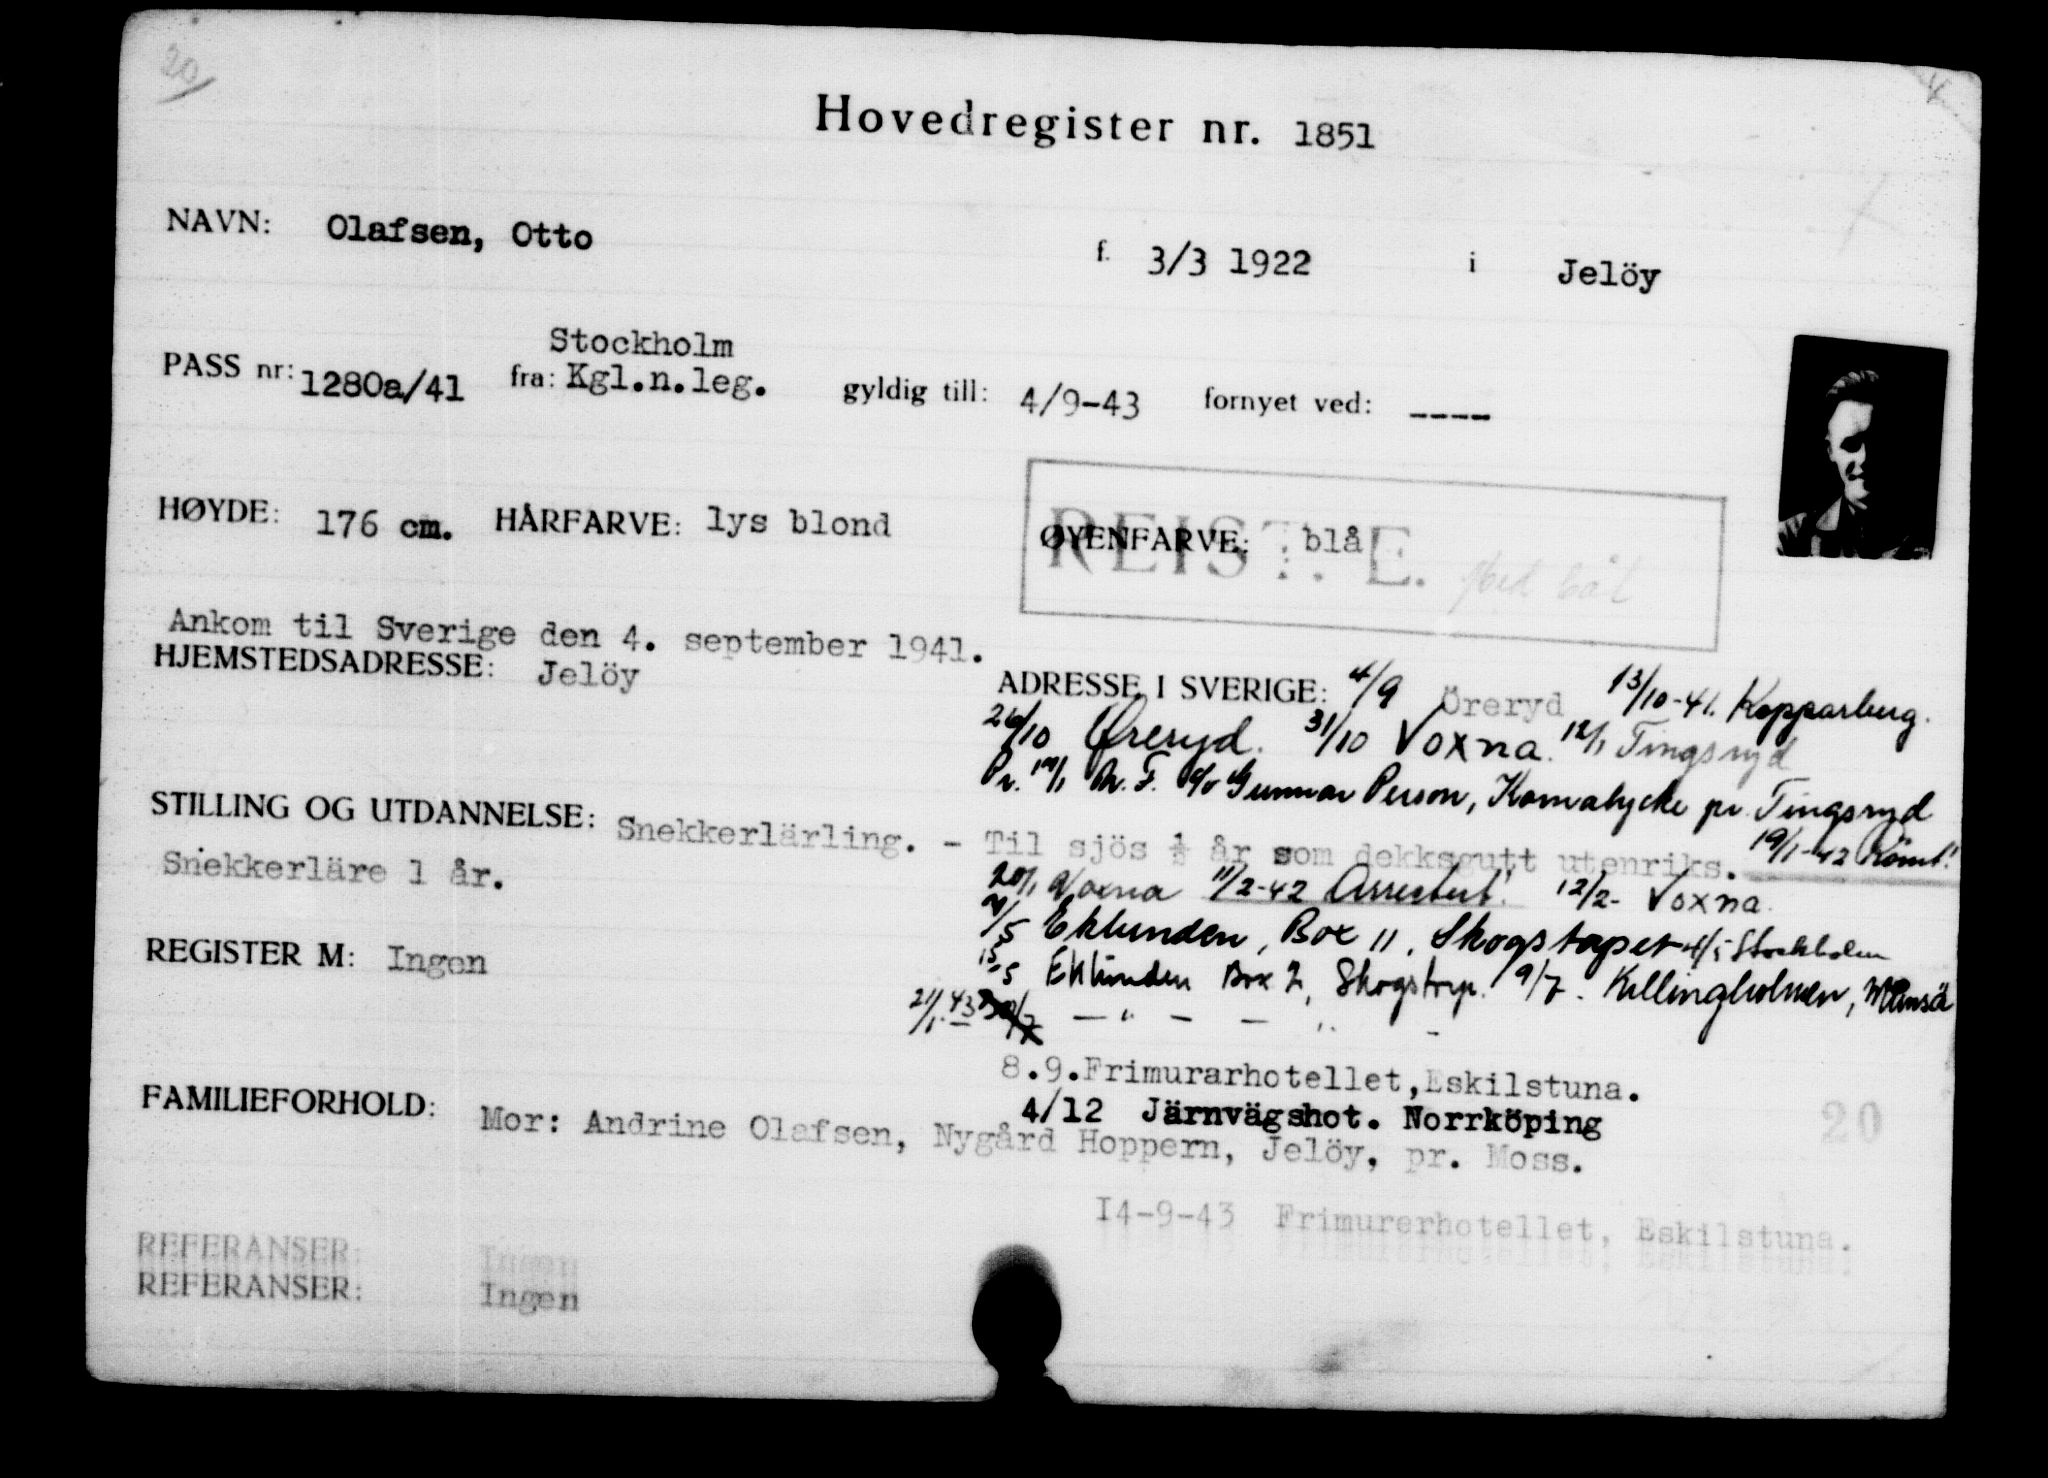 20/
Hovedregister nr. 1851
NAVN: Olafsen, Otto f. 3/3 1922 i Jelöy
Stockholm
PASS nr: 1280a/41 fra: Kgl.n.leg. gyldig till: 4/9-43 fornyet ved: ----
HØYDE: 176 cm. HÅRFARVE: lys blond ØYENFARVE: blå
REIST E. med båt
Ankom til Sverige den 4. september 1941.
HJEMSTEDSADRESSE: Jelöy
ADRESSE I SVERIGE: 4/9 Öreryd 13/10-41. Kopparberg.
26/10 Øreryd. 31/10 Voxna. 12/1 Tingsryd
Pr. 14/1 Gunnar Person, Kornalycke pr. Tingsryd
STILLING OG UTDANNELSE: Snekkerlärling. - Til sjös ½ år som dekksgutt utenriks. 19/1-42 Römt!
Snekkerläre 1 år.
20/1 Voxna 11/2-42 Arrestert! 12/2- Voxna.
4/5 Eklunden, Box 11, Skogstorpet 4/5 Stockholm
REGISTER M: Ingen
15-5 Eklunden Box 2, Skogstorp. 9/7. Killingholmen, Mämsä
21/1.43 — " — — " -
8.9.Frimurarhotellet,Eskilstuna.
4/12 Järnvägshot. Norrköping
20
FAMILIEFORHOLD: Mor: Andrine Olafsen, Nygård Hoppern, Jelöy, pr. Moss.
I4-9-43 Frimurerhotellet, Eskilstuna.
REFERANSER: Ingen
REFERANSER: Ingen